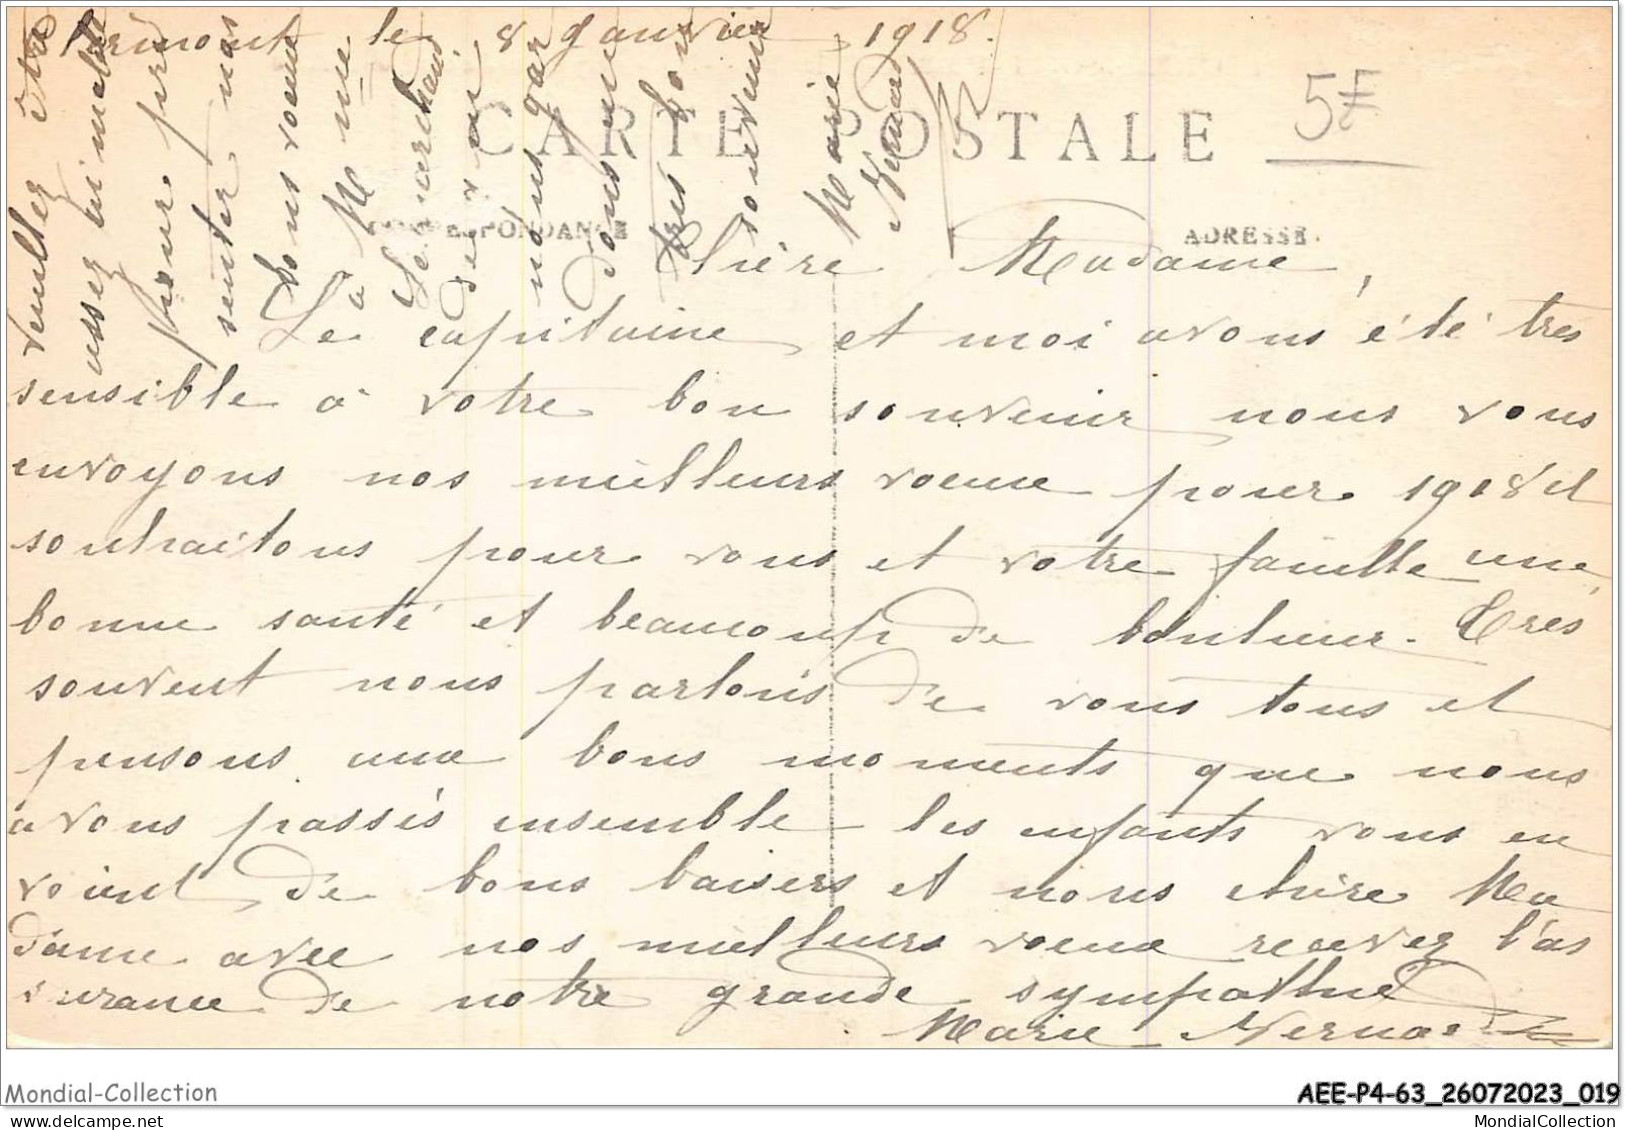 le 8 Janvier 1918.
CARTE POSTALE
5F
CORRESPONDANCE
ADRESSE
Chère Madame,
Le capitaine et moi avons été très
sensible à votre bon souvenir nous vous
envoyons nos meilleurs voeux pour 1918 et
souhaitons pour vous et votre famille une
bonne santé et beaucoup de bonheur. Très
souvent nous parlons de vous tous et
pensons aux bons moments que nous
avons passés ensemble les enfants vous en
voient de bons baisers et nous chère Ma
dame avec nos meilleurs voeux recevez l'as
surance de notre grande sympathie
Marie
Veuillez être
assez aimable
pour pré
senter nos
bons voeux
à Mme
nous gar
dons un
très bon
souvenir
Marie
Mondial-Collection
AEE-P4-63_26072023_019
MondialCollection